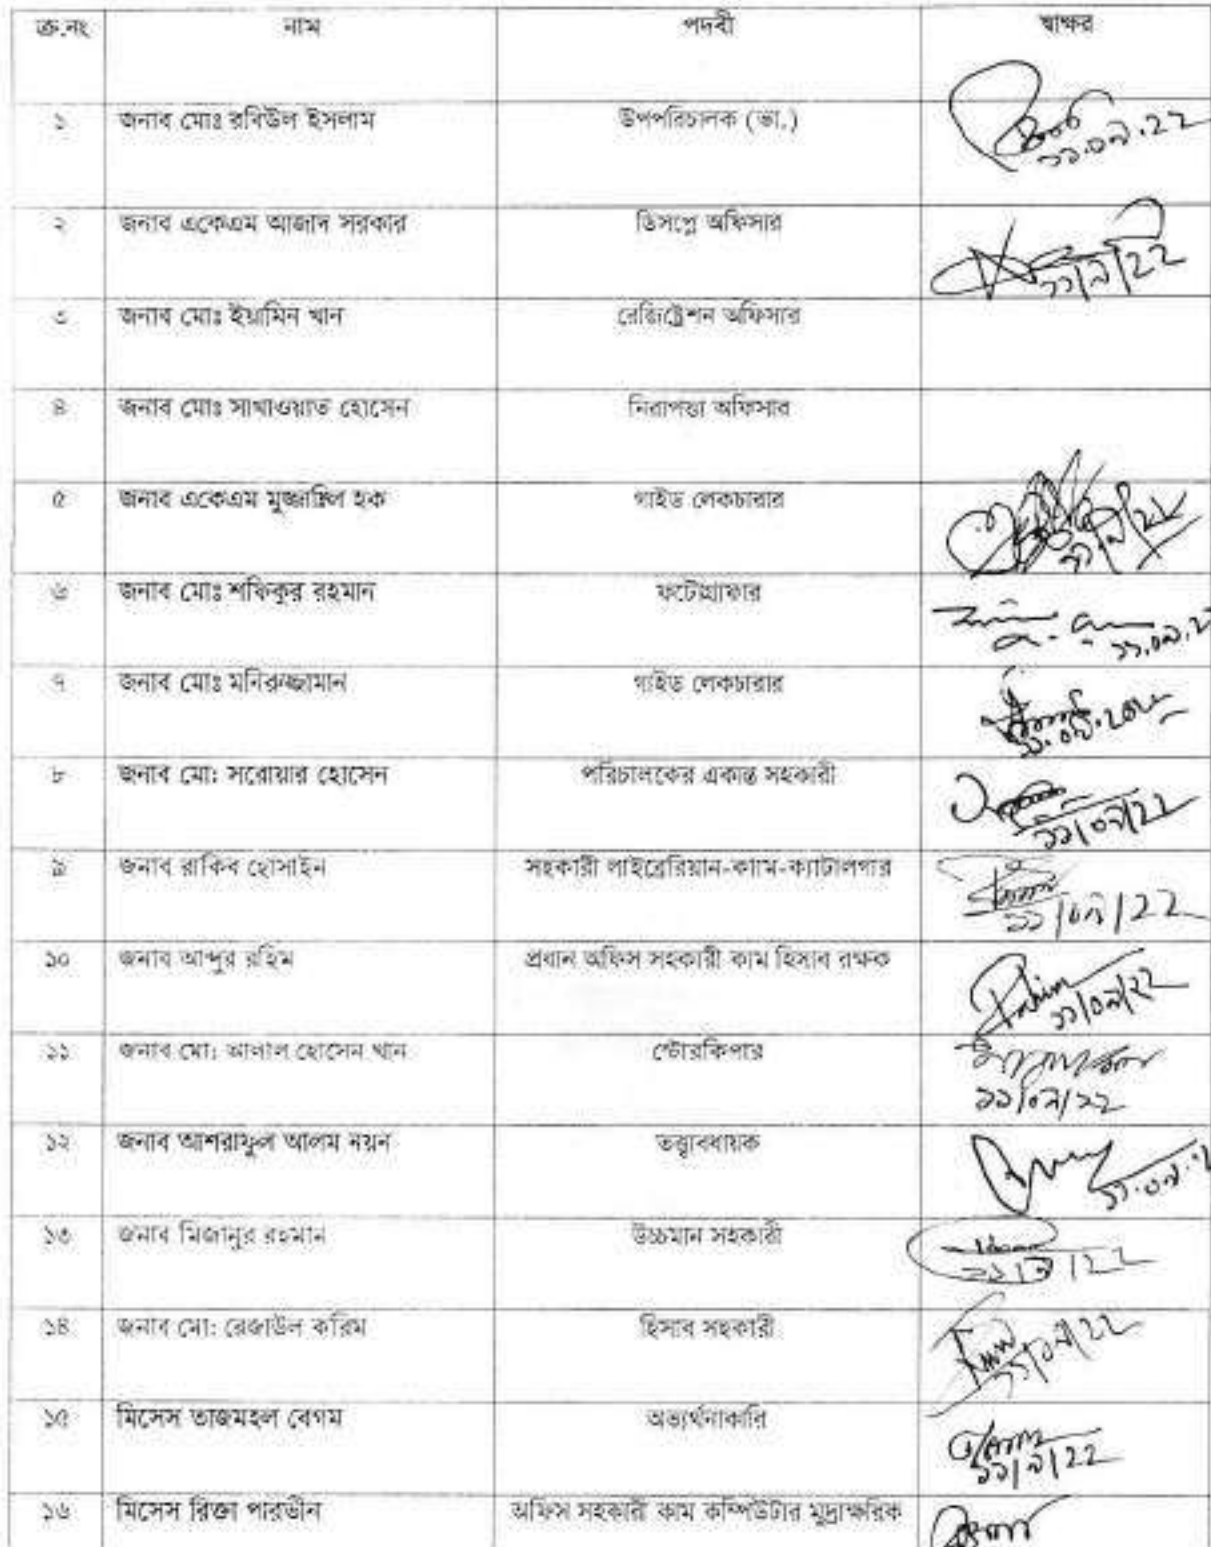 ক্র.নং নাম পদবী স্বাক্ষর
১ জনাব মোঃ রবিউল ইসলাম উপপরিচালক (ভা.)
১১.০৯.২২
২ জনাব একেএম আজাদ সরকার ডিসপ্লে অফিসার
১১/৯/২২
৩ জনাব মোঃ ইয়ামিন খান রেজিস্ট্রেশন অফিসার
৪ জনাব মোঃ সাখাওয়াত হোসেন নিরাপত্তা অফিসার
৫ জনাব একেএম মুজ্জাম্মিল হক গাইড লেকচারার
৬ জনাব মোঃ শফিকুর রহমান ফটোগ্রাফার
৭ জনাব মোঃ মনিরুজ্জামান গাইড লেকচারার
৮ জনাব মো: সরোয়ার হোসেন পরিচালকের একান্ত সহকারী
১১/০৯/২২
৯ জনাব রাকিব হোসাইন সহকারী লাইব্রেরিয়ান-কাম-ক্যাটালগার
১১/০৯/২২
১০ জনাব আব্দুর রহিম প্রধান অফিস সহকারী কাম হিসাব রক্ষক
Rahim
১১/০৯/২২
১১ জনাব মো: আলাল হোসেন খান স্টোরকিপার
১১/০৯/২২
১২ জনাব আশরাফুল আলম নয়ন তত্ত্বাবধায়ক
১৩ জনাব মিজানুর রহমান উচ্চমান সহকারী
১১/৯/২২
১৪ জনাব মো: রেজাউল করিম হিসাব সহকারী
১১/০৯/২২
১৫ মিসেস তাজমহল বেগম অভ্যর্থনাকারি
১১/৯/২২
১৬ মিসেস রিক্তা পারভীন অফিস সহকারী কাম কম্পিউটার মুদ্রাক্ষরিক